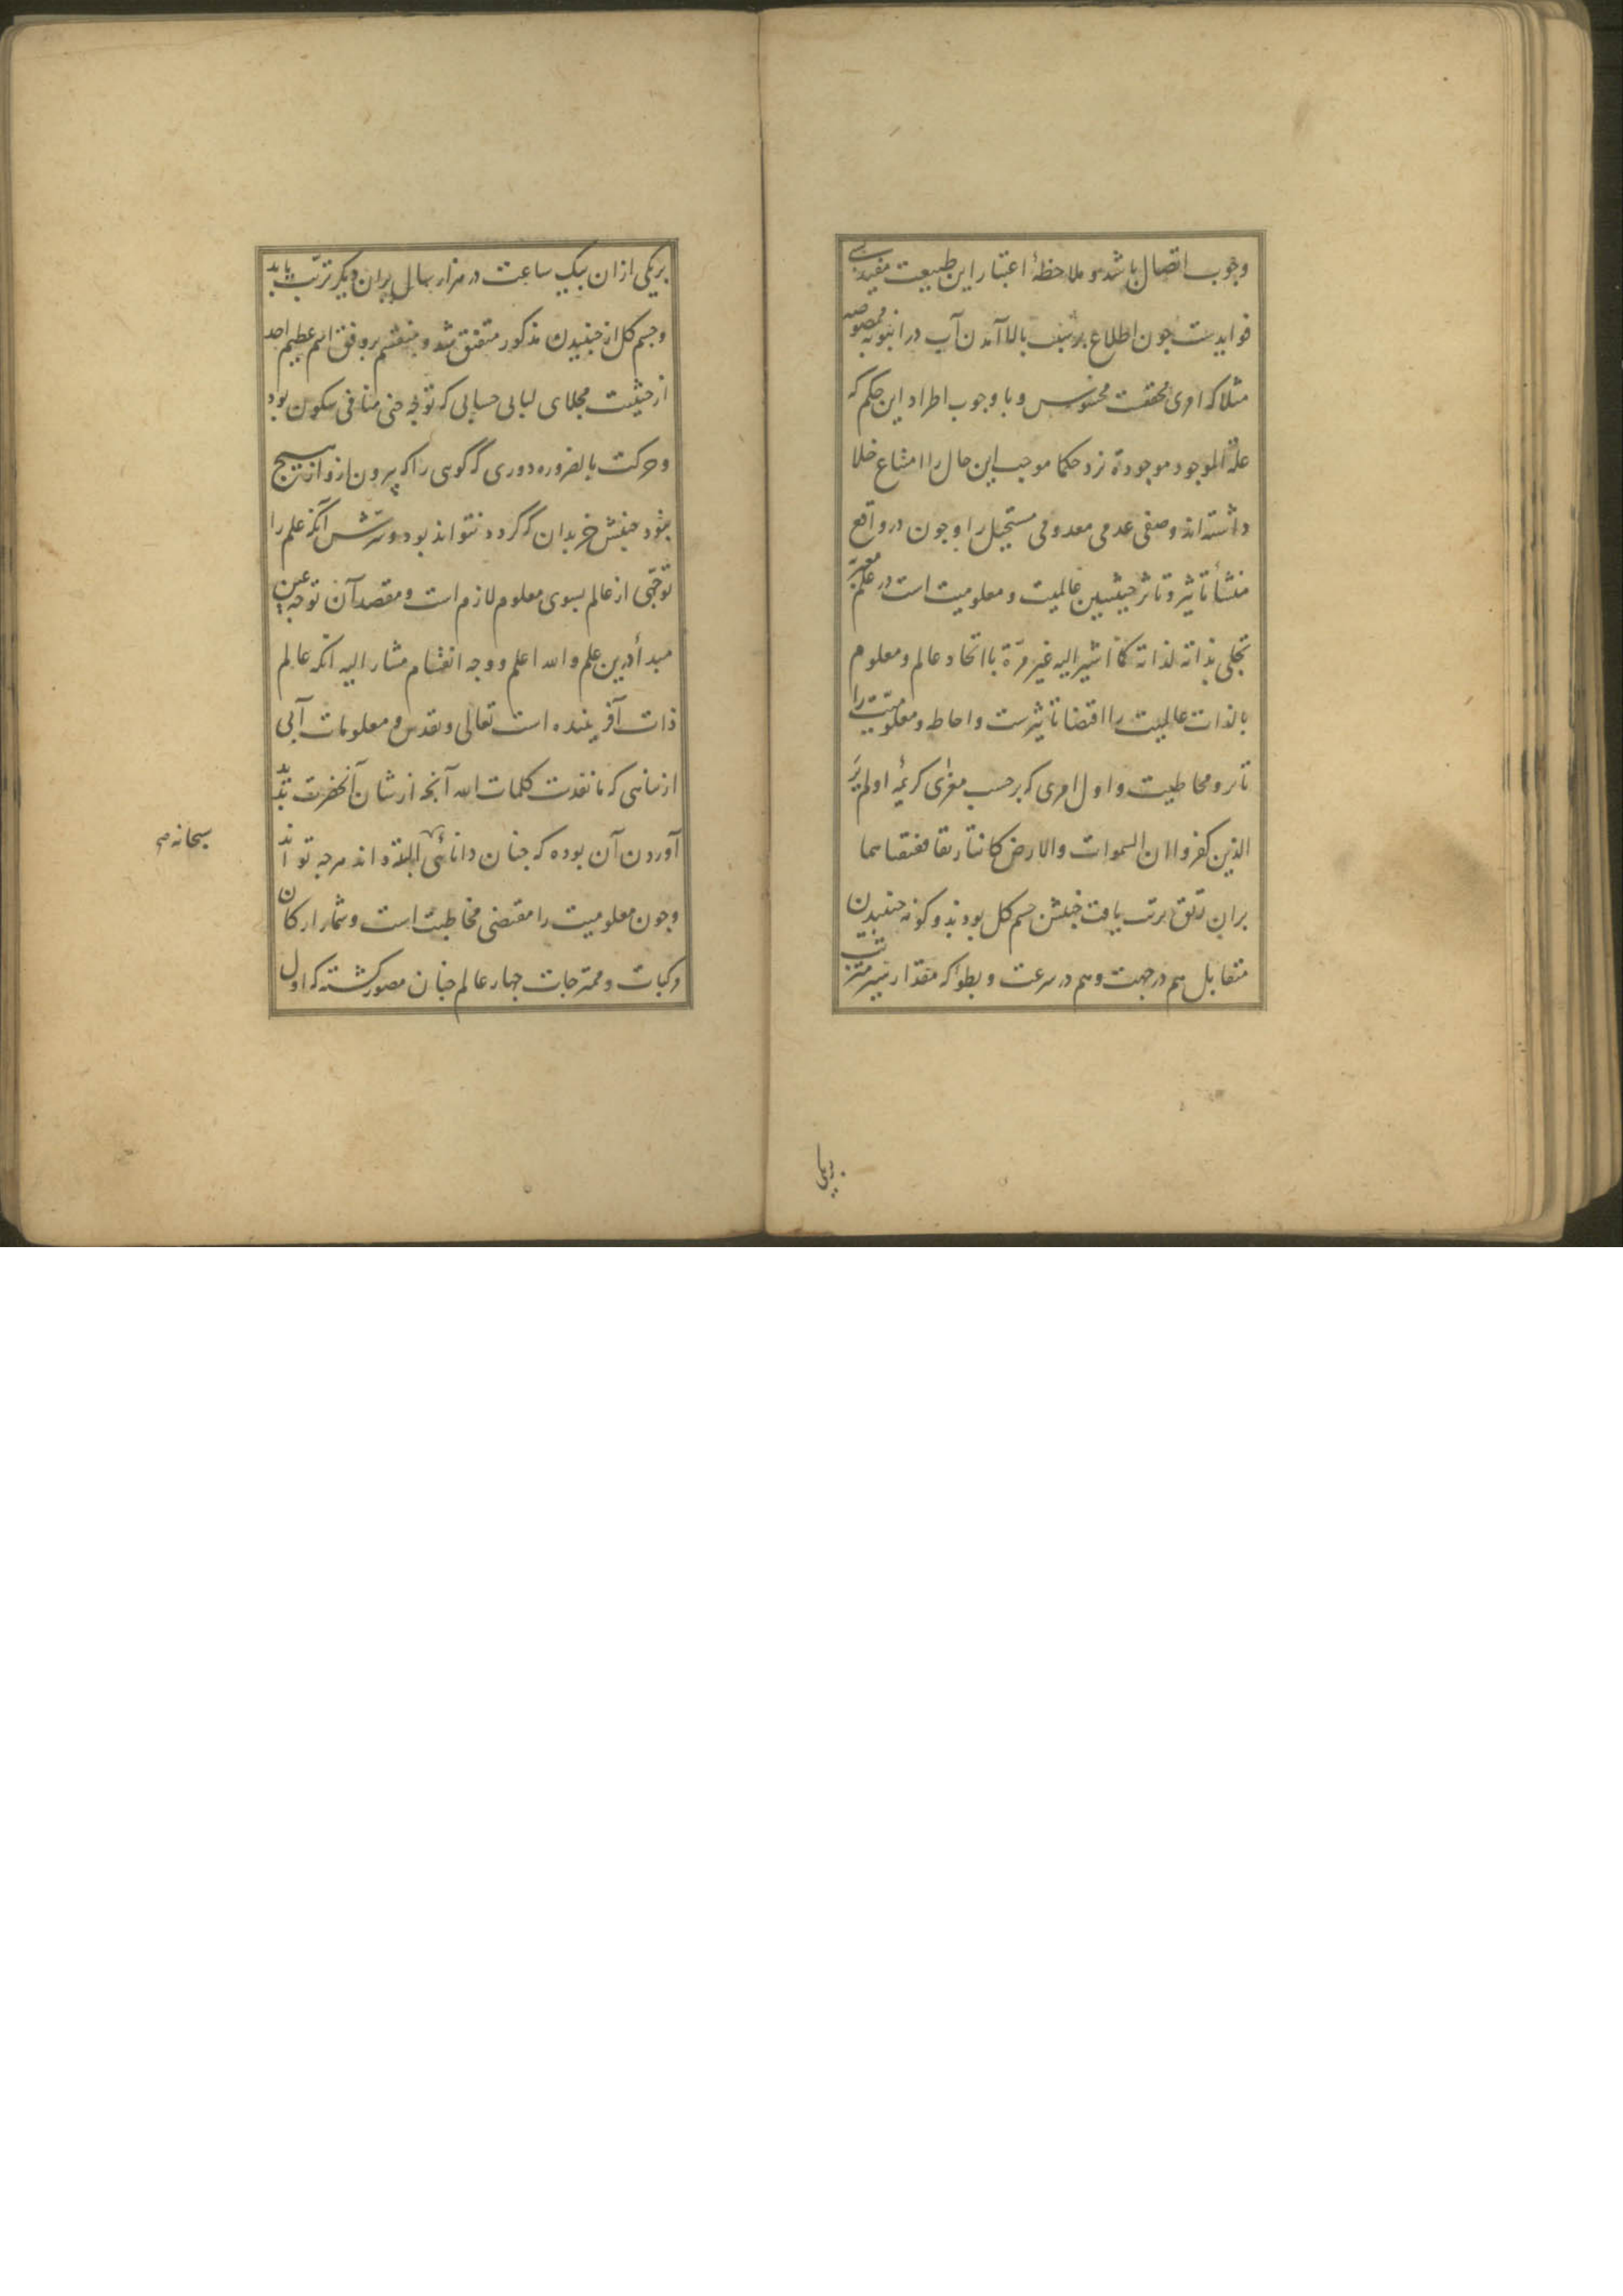 وجوب اتصال باشد و ملاحظهٔ اعتبار این طبیعت مفید بسی
فوایدست چون اطلاع بر سبب بالا آمدن آب در انبوبهٔ ممصوصه
مثلا که امری محققست محسوس و با وجوب اطراد این حکم که
علة الموجود موجودة نزد حکما موجب این حال را امتناع خلا
داشته‌اند وصفی عدمی معدومی مستحیل را و چون در واقع
منشأ تاثیر و تاثر حیثیتین عالمیت و معلومیت است در علم
تجلی بذاته لذاته کما اشیر الیه غیر مرّة با اتحاد عالم و معلوم
بالذات عالمیت را اقتضا تاثیرست و احاطه و معلومیت را
تاثر و محاطیت و اول امری که بر حسب مغزی کریمهٔ اولم یَرَ
الذین کفروا ان السموات والارض کانتا رتقا ففتقناهما
بران رتق ترتب یافت جنبش جسم کل بود بدو گونه جنبیدن
متقابل هم در جهت و هم در سرعت و بطو که مقدار سیر مترتب
بریکی
بریکی ازان بیک ساعت در هزار سال بران دیکر ترتّب یابد
و جسم کل از جنبیدن مذکور متفتق شد و منقسم بر وفق اسم عظیم احد
از حیثیت مجلای لبابی حسابی که توجه حبی منافی سکون بود
و حرکت بالضروره دوری که گوی را که بیرون ازو ازو هیچ
نبود جنبش جز بدان که گردد نتواند بود و سرّش آنکه علم را
توجّهی از عالم بسوی معلوم لازم است و مقصد آن توجه عین
مبدأ درین علم والله اعلم و وجه انقسام مشار الیه آنکه عالم
ذات آفریننده است تعالی و تقدس و معلومات آبی
از تناهی که ما نفدت کلمات الله آنچه از شان آنحضرت پدید
آوردن آن بوده که چنان دانائی ابلاغ داند هرچه تواند
سبحانه صح
و چون معلومیت را مقتضی محاطیت است و شمار ارکان
مرکبات و ممتزجات چهار عالم چنان مصور گشته که اول